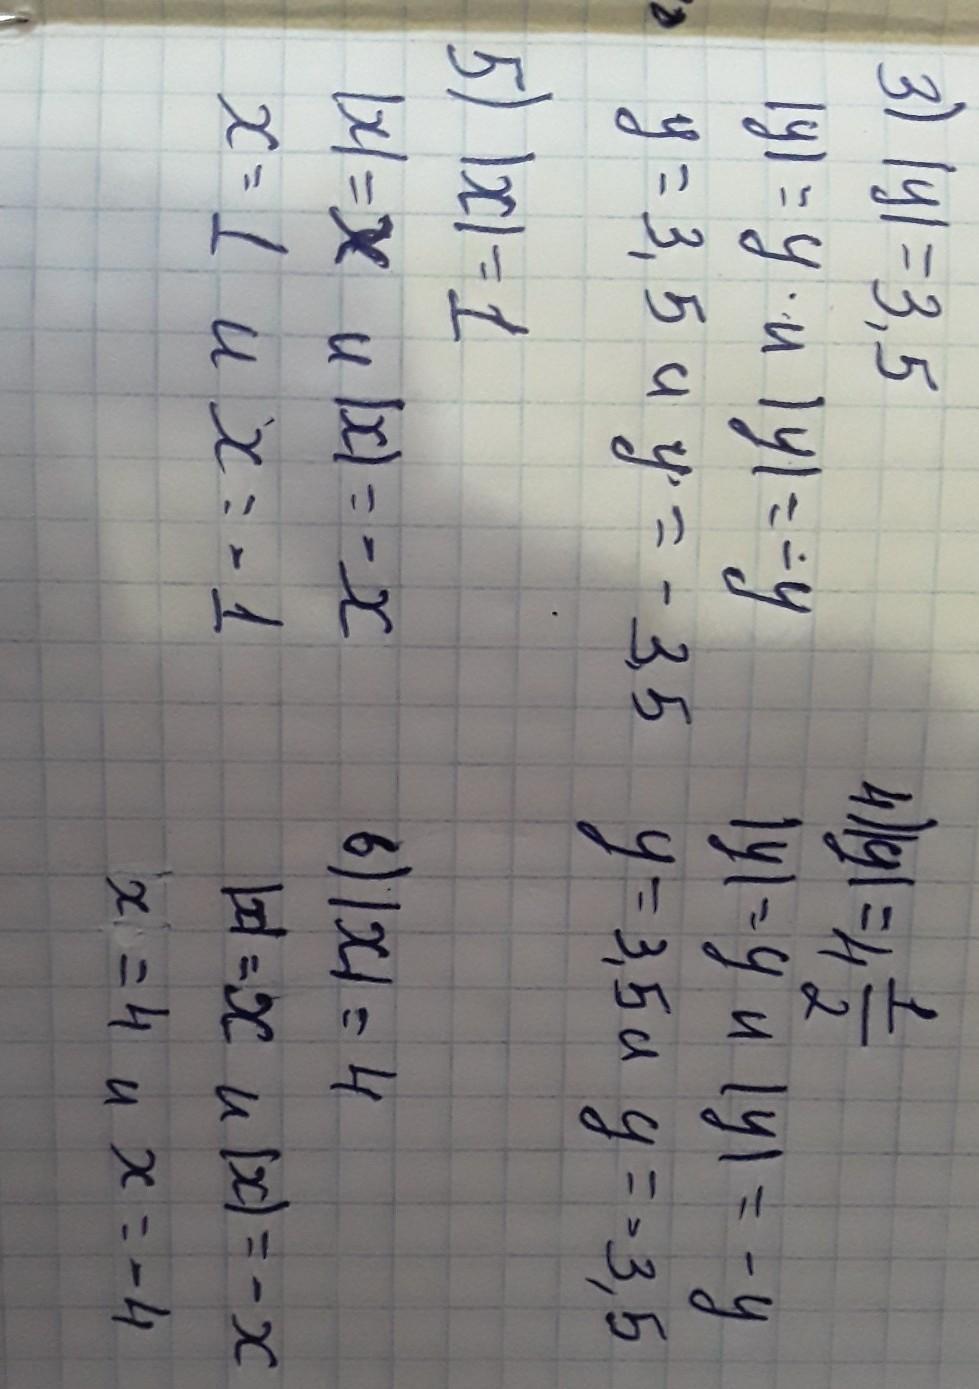 3) |y| = 3,5
|y| = y и |y| = -y
y = 3,5 и y = -3,5
4) |y| = 4 1/2
|y| = y и |y| = -y
y = 3,5 и y = -3,5
5) |x| = 1
|x| = x и |x| = -x
x = 1 и x = -1
6) |x| = 4
|x| = x и |x| = -x
x = 4 и x = -4